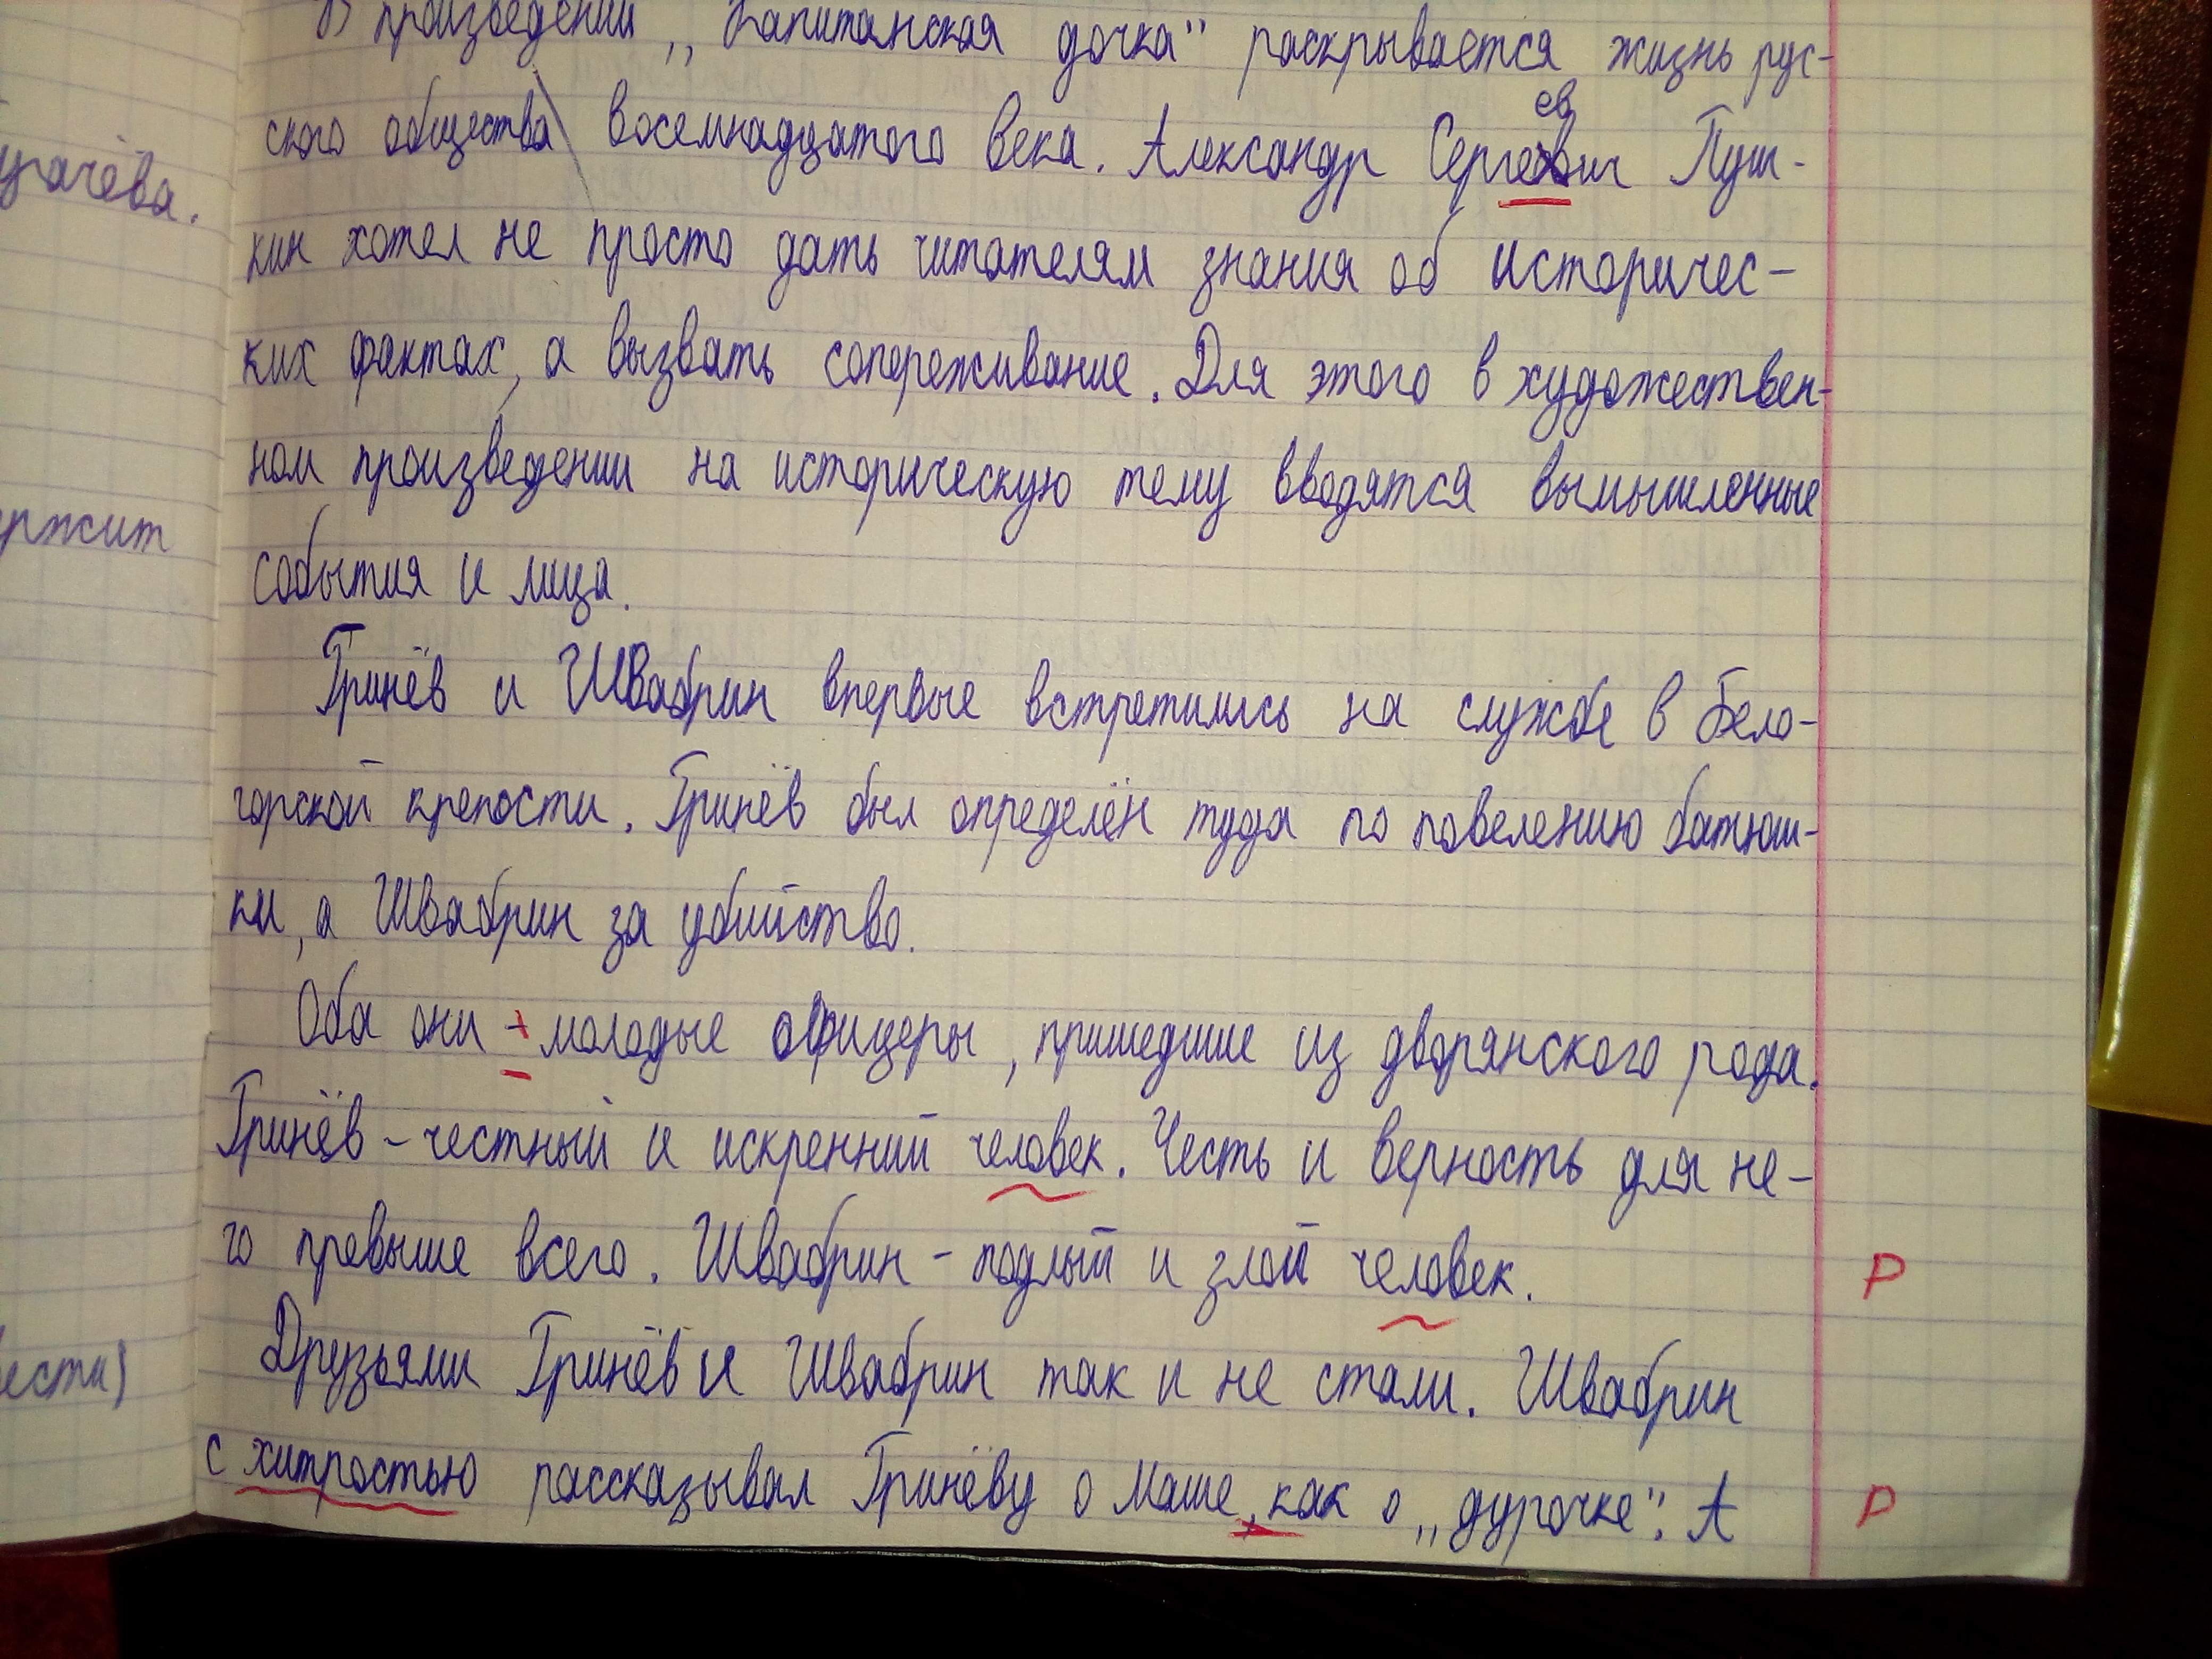 В произведении „Капитанская дочка" раскрывается жизнь рус-
ского общества восемнадцатого века. Александр Сергеевич Пуш-
кин хотел не просто дать читателям знания об историчес-
ких фактах, а вызвать сопереживание. Для этого в художествен-
ном произведении на историческую тему вводятся вымышленные
события и лица.
Гринёв и Швабрин впервые встретились на службе в Бело-
горской крепости. Гринёв был определён туда по повелению батюш-
ки, а Швабрин за убийство.
Оба они - молодые офицеры, пришедшие из дворянского рода.
Гринёв - честный и искренний человек. Честь и верность для не-
го превыше всего. Швабрин - подлый и злой человек.
Р
Друзьями Гринёв и Швабрин так и не стали. Швабрин
с хитростью рассказывал Гринёву о Маше, как о „дурочке". А
Р
угачёва.
ержит
ести)